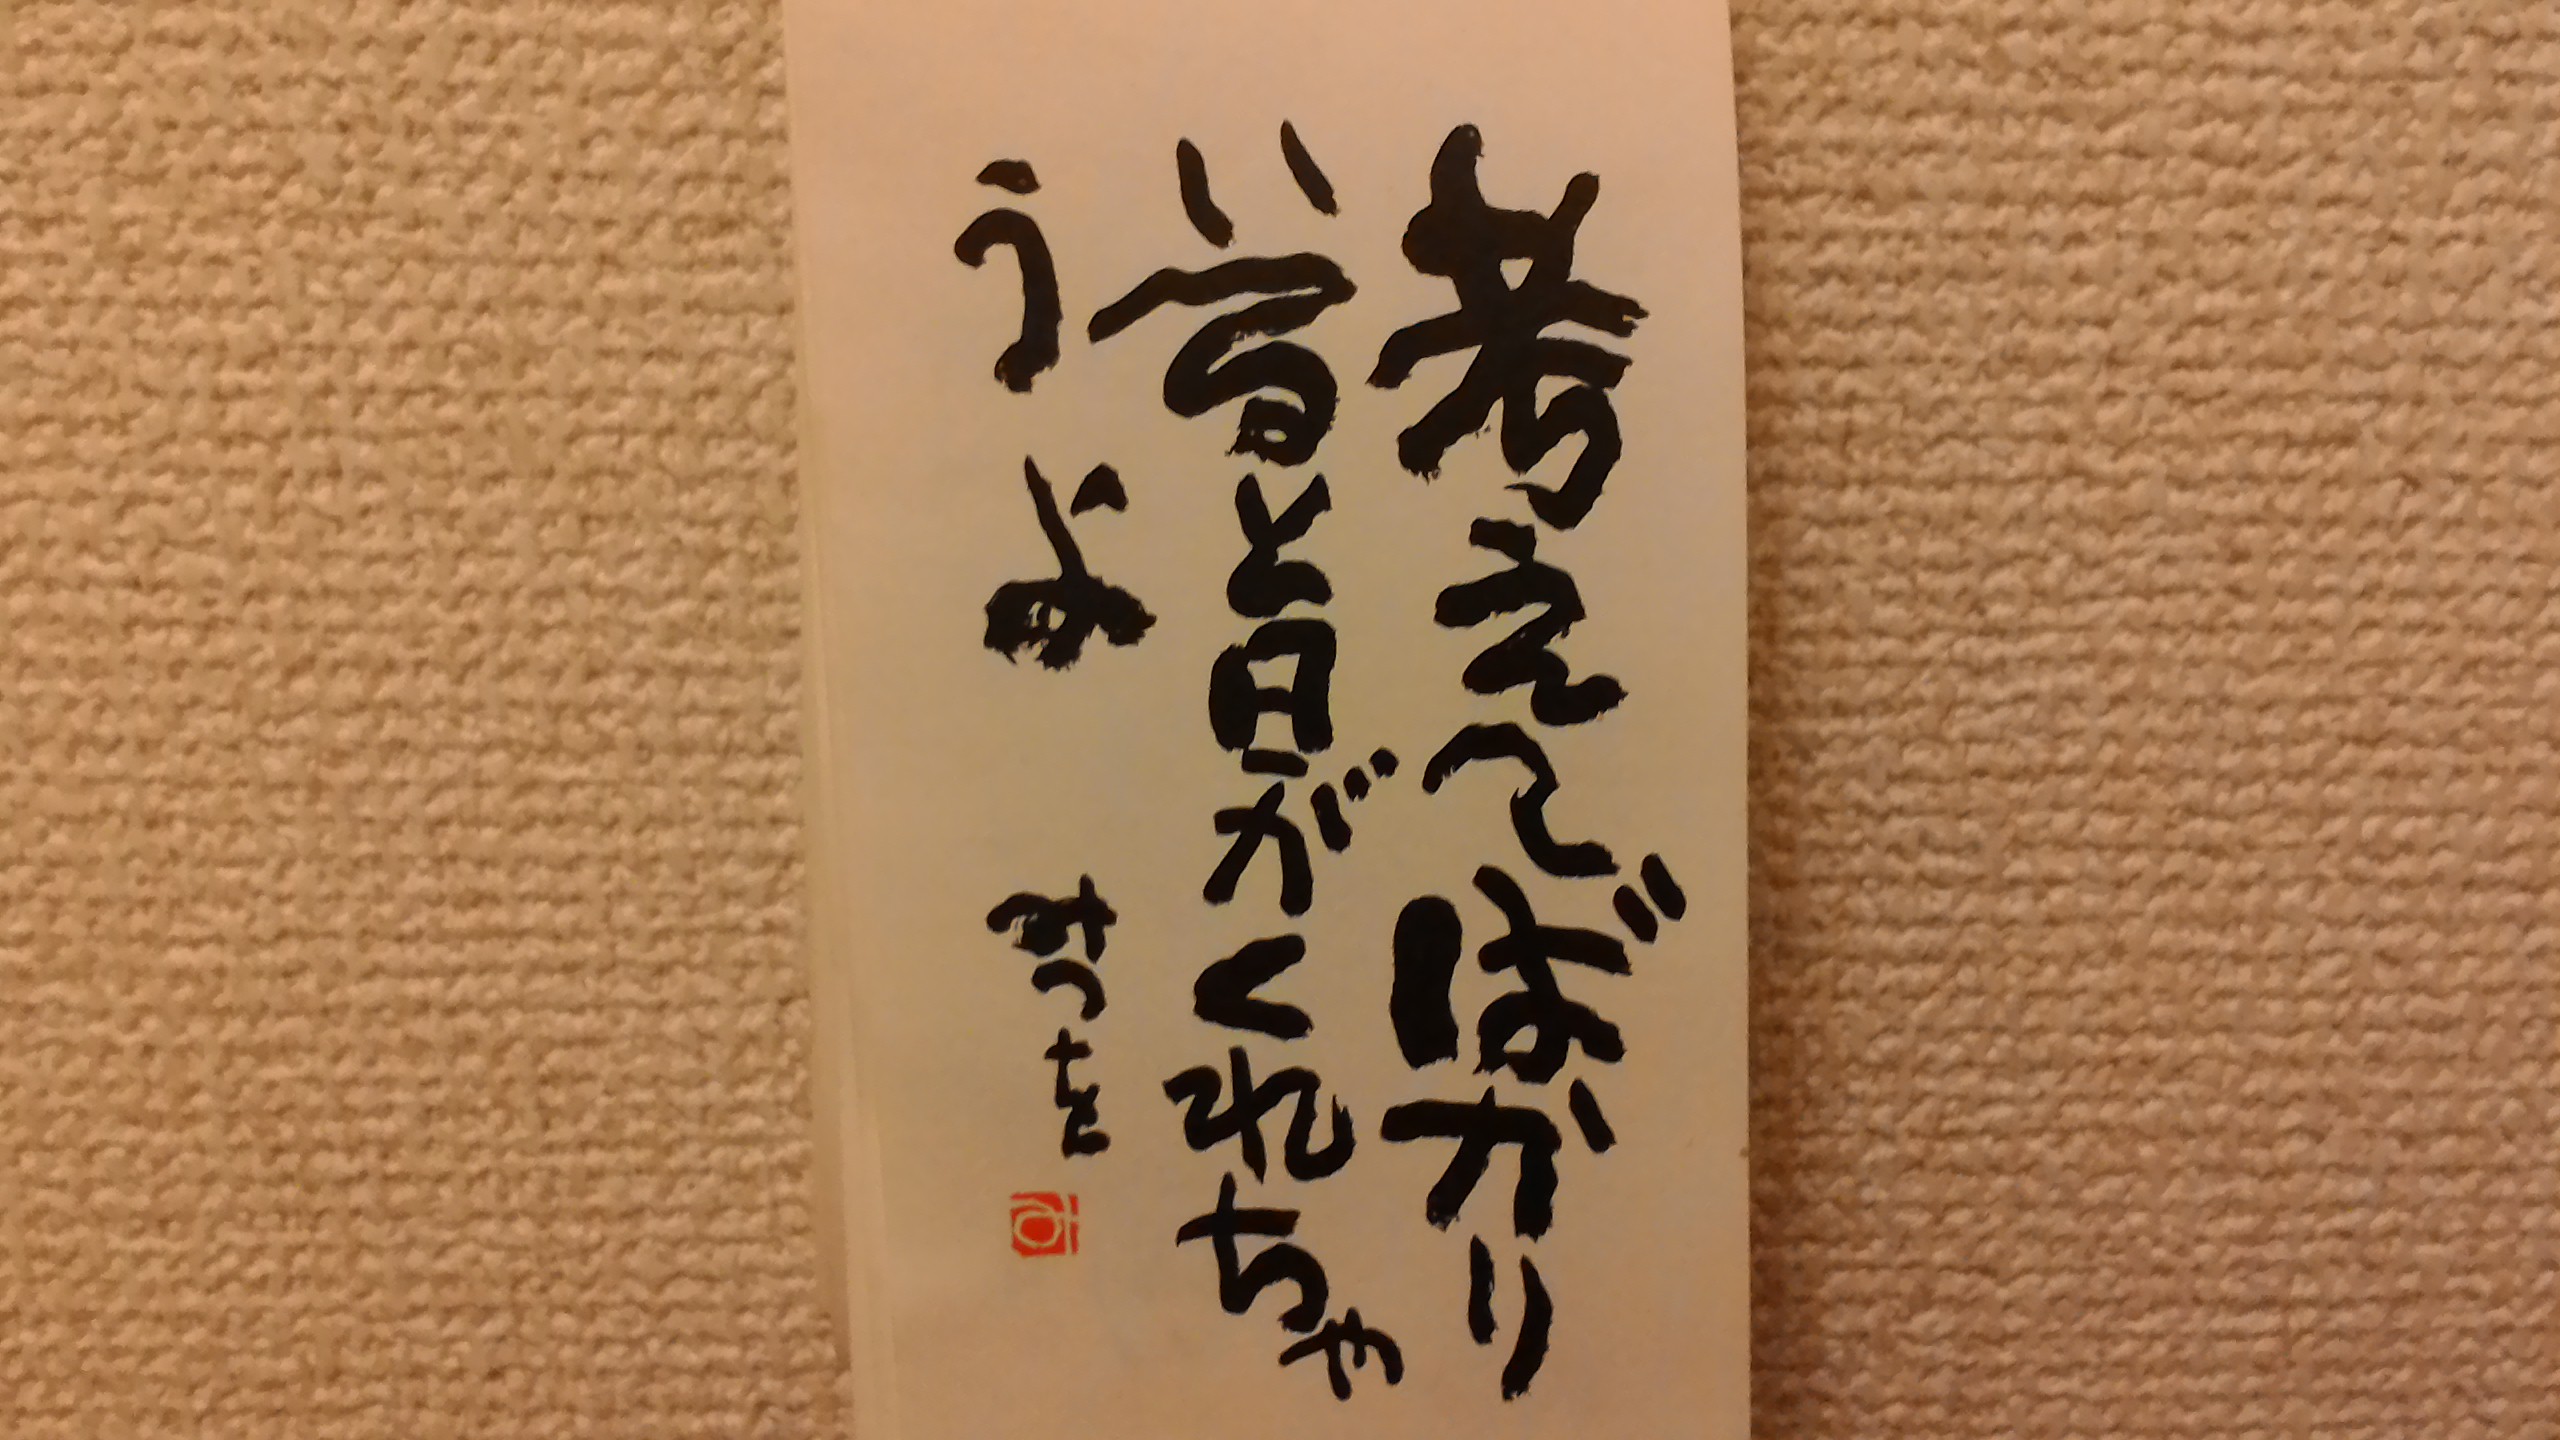 考えてばかり
いると日がくれちゃ
うよ
みつを